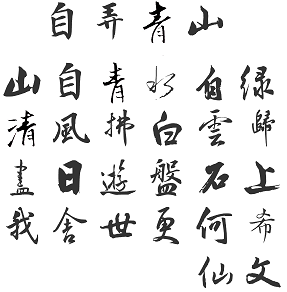 自弄青山
山自青水自綠
清風拂白雲歸
盡日遊盤石上
我舍世更何希
仙文